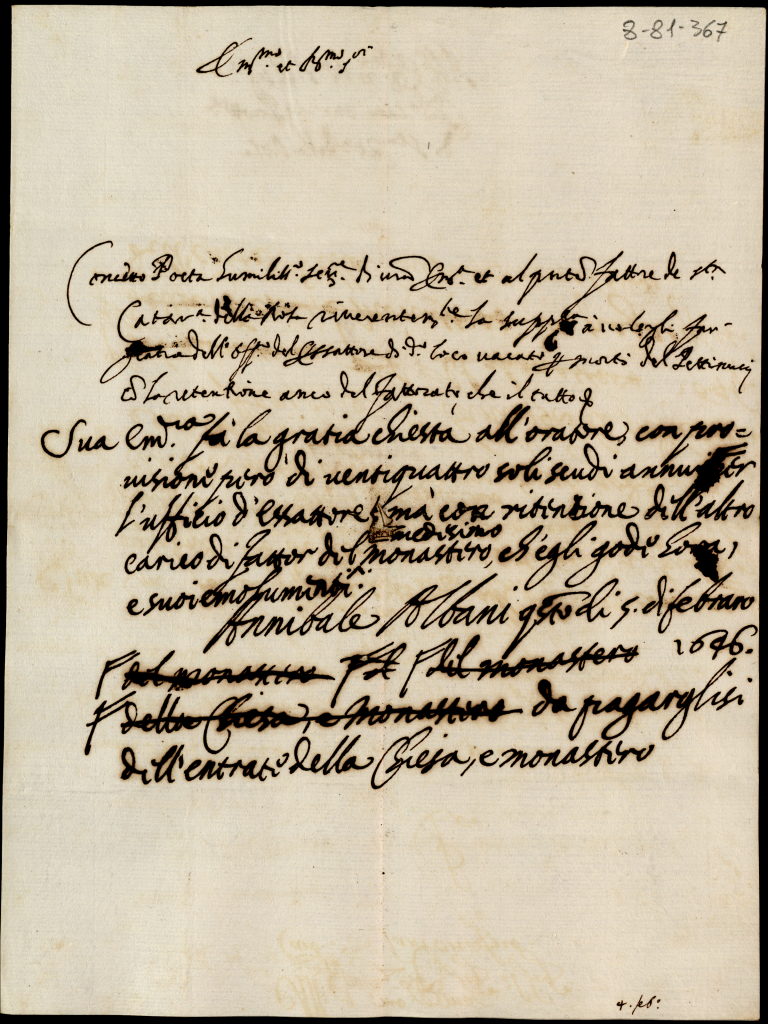 8-81-367
Em.mo et R.mo S.or
Concetto Poeta humiliss.o ser.re di V.ra Em.a et al pnte fattore de S.ta
Catar.a della Rosa riverentem.te la supp.ca à volergli far
gratia dell'Off.o del Essattore di d.o loco vacato p morte del Pettinucci
cō la retentione anco del fattorato, che il tutto
Sua Em.za fà la gratia chiesta all'oratore, con pro=
visione però di ventiquattro soli scudi annui per
l'ufficio d'Essattore, mà con ritentione dell'altro
medesimo
carico di fattor del monastero, ch'egli gode hora,
e suoi emolumenti.
Annibale Albani qsto di 5. di febraro
1646.
del monastero del monastero
della Chiesa, e monastero da pagarglisi
dell'entrate della Chiesa, e monastero
4. feb.o